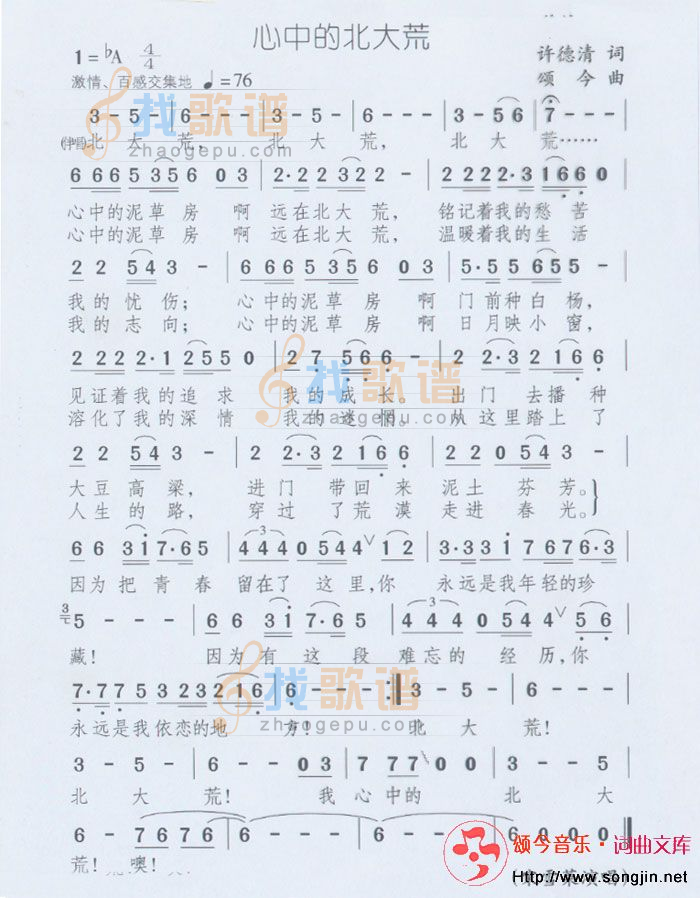 心中的北大荒
1=♭A 4/4
许德清 词
激情、百感交集地 ♩=76
颂今 曲
3 - 5 - | 6 - - - | 3 - 5 - | 6 - - - | 3 - 5 6 | 7 - - - |
(伴唱)北 大 荒, 北 大 荒, 北 大 荒……
6 6 6 5 3 5 6 0 3 | 2· 2 2 3 2 2 - | 2 2 2 2·3 1 6 6 0 |
心中的泥草 房 啊 远在北大 荒, 铭记着我的愁 苦
心中的泥草 房 啊 远在北大 荒, 温暖着我的生 活
2 2 5 4 3 - | 6 6 6 5 3 5 6 0 3 | 5·5 5 6 5 5 - |
我 的 忧 伤; 心中的泥草 房 啊 门前种白杨,
我 的 志 向; 心中的泥草 房 啊 日月映小窗,
2 2 2 2·1 2 5 5 0 | 2 7 5 6 6 - | 2 2·3 2 1 6 6 |
见证着我的追 求 我的成长。 出门 去播 种
溶化了我的深 情 我的迷惘。 从这里踏上了
2 2 5 4 3 - | 2 2·3 2 1 6 6 | 2 2 0 5 4 3 - |
大豆高粱, 进门 带回来 泥土 芬芳。
人生的路, 穿过 了荒漠 走进 春光。
6 6 3 1 7·6 5 | 4 4 4 0 5 4 4 1 2 | 3·3 3 1 0 7 6 7 6·3 |
因为 把 青 春 留在了 这里,你 永远是我年轻的珍
5 - - - | 6 6 3 1 7·6 5 | 4 4 4 0 5 4 4 5 6 |
藏! 因为 有 这 段 难忘的 经历,你
7·7 7 5 3 2 3 2 1 6 | 6 - - - :| 3 - 5 - | 6 - - - |
永远是我依恋的地 方! 北 大 荒!
3 - 5 - | 6 - - 0 3 | 7 7 7 0 0 | 3 - - 5 |
北 大 荒! 我 心中的 北 大
6 - 7 6 7 6 | 6 - - - | 6 - - - | 6
荒! 噢!
找歌谱
zhaogepu.com
找歌谱
zhaogepu.com
找歌谱
zhaogepu.com
颂今音乐·词曲文库
Http://www.songjin.net
演唱)